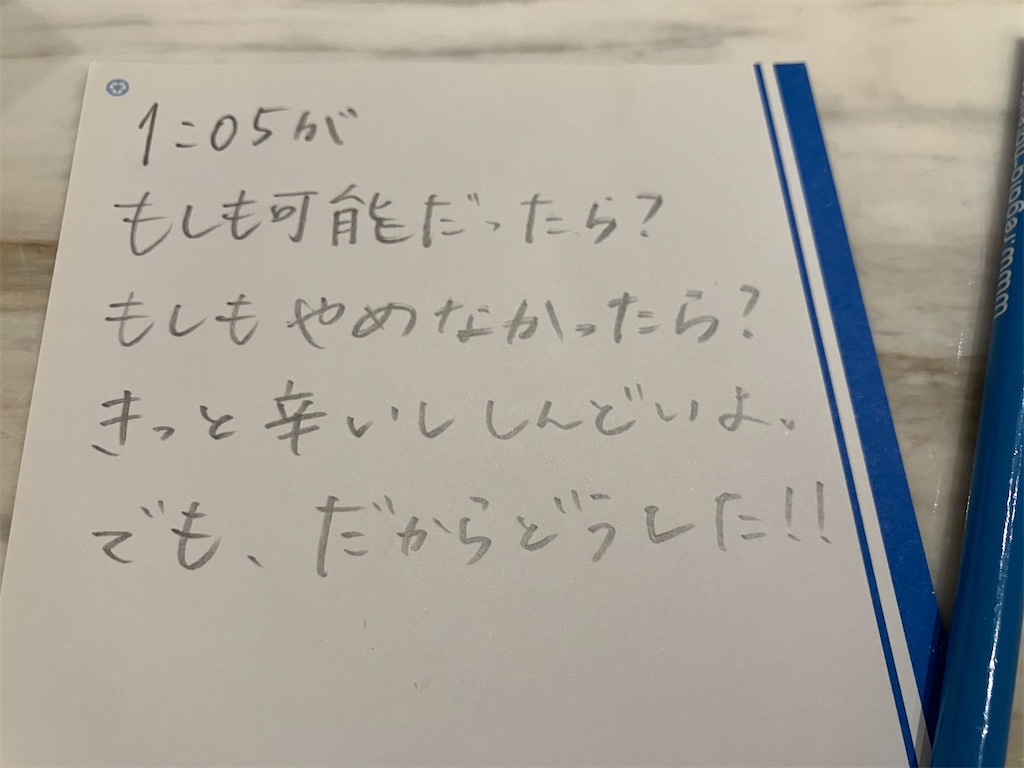 1:05が
もしも可能だったら?
もしもやめなかったら?
きっと辛いししんどいよ、
でも、だからどうした!!